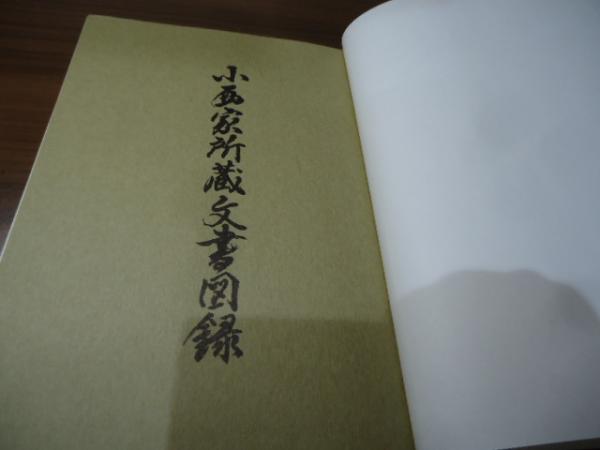 小西家所蔵文書図録